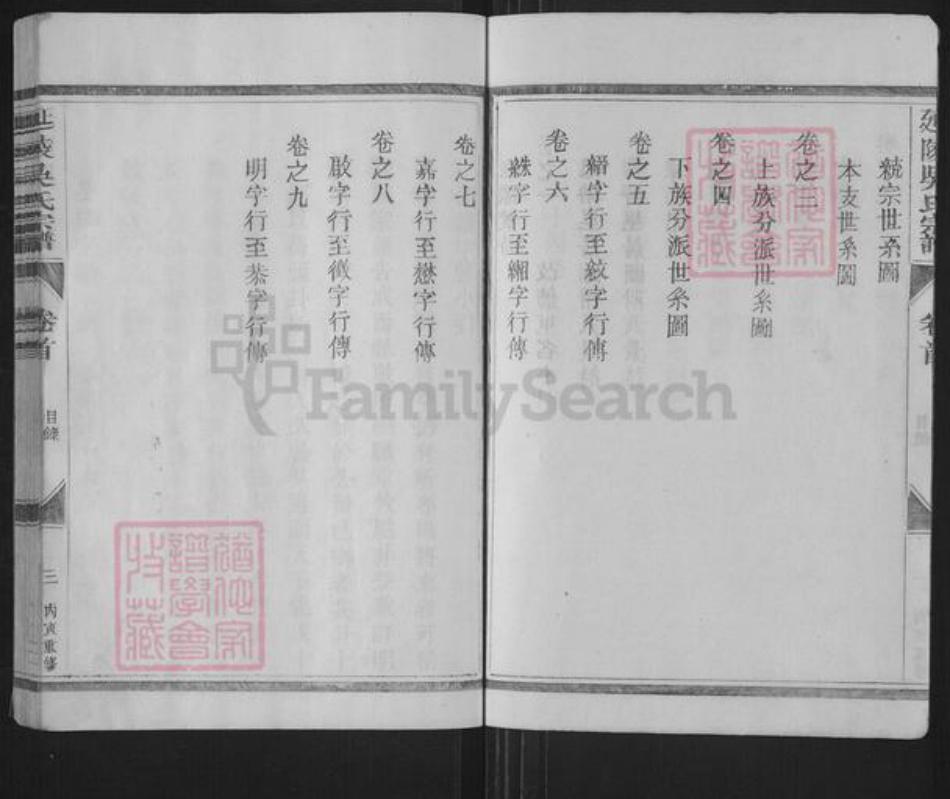 延陵吳氏宗譜
卷首
統宗世系圖
本支世系圖
卷之三
上族分派世系圖
卷之四
下族分派世系圖
卷之五
縉字行至敘字行傳
卷之六
銖字行至緗字行傳
卷之七
嘉字行至懋字行傳
卷之八
啟字行至徵字行傳
卷之九
明字行至恭字行傳
延陵吳氏宗譜
卷首
目錄
三
丙寅重修
FamilySearch